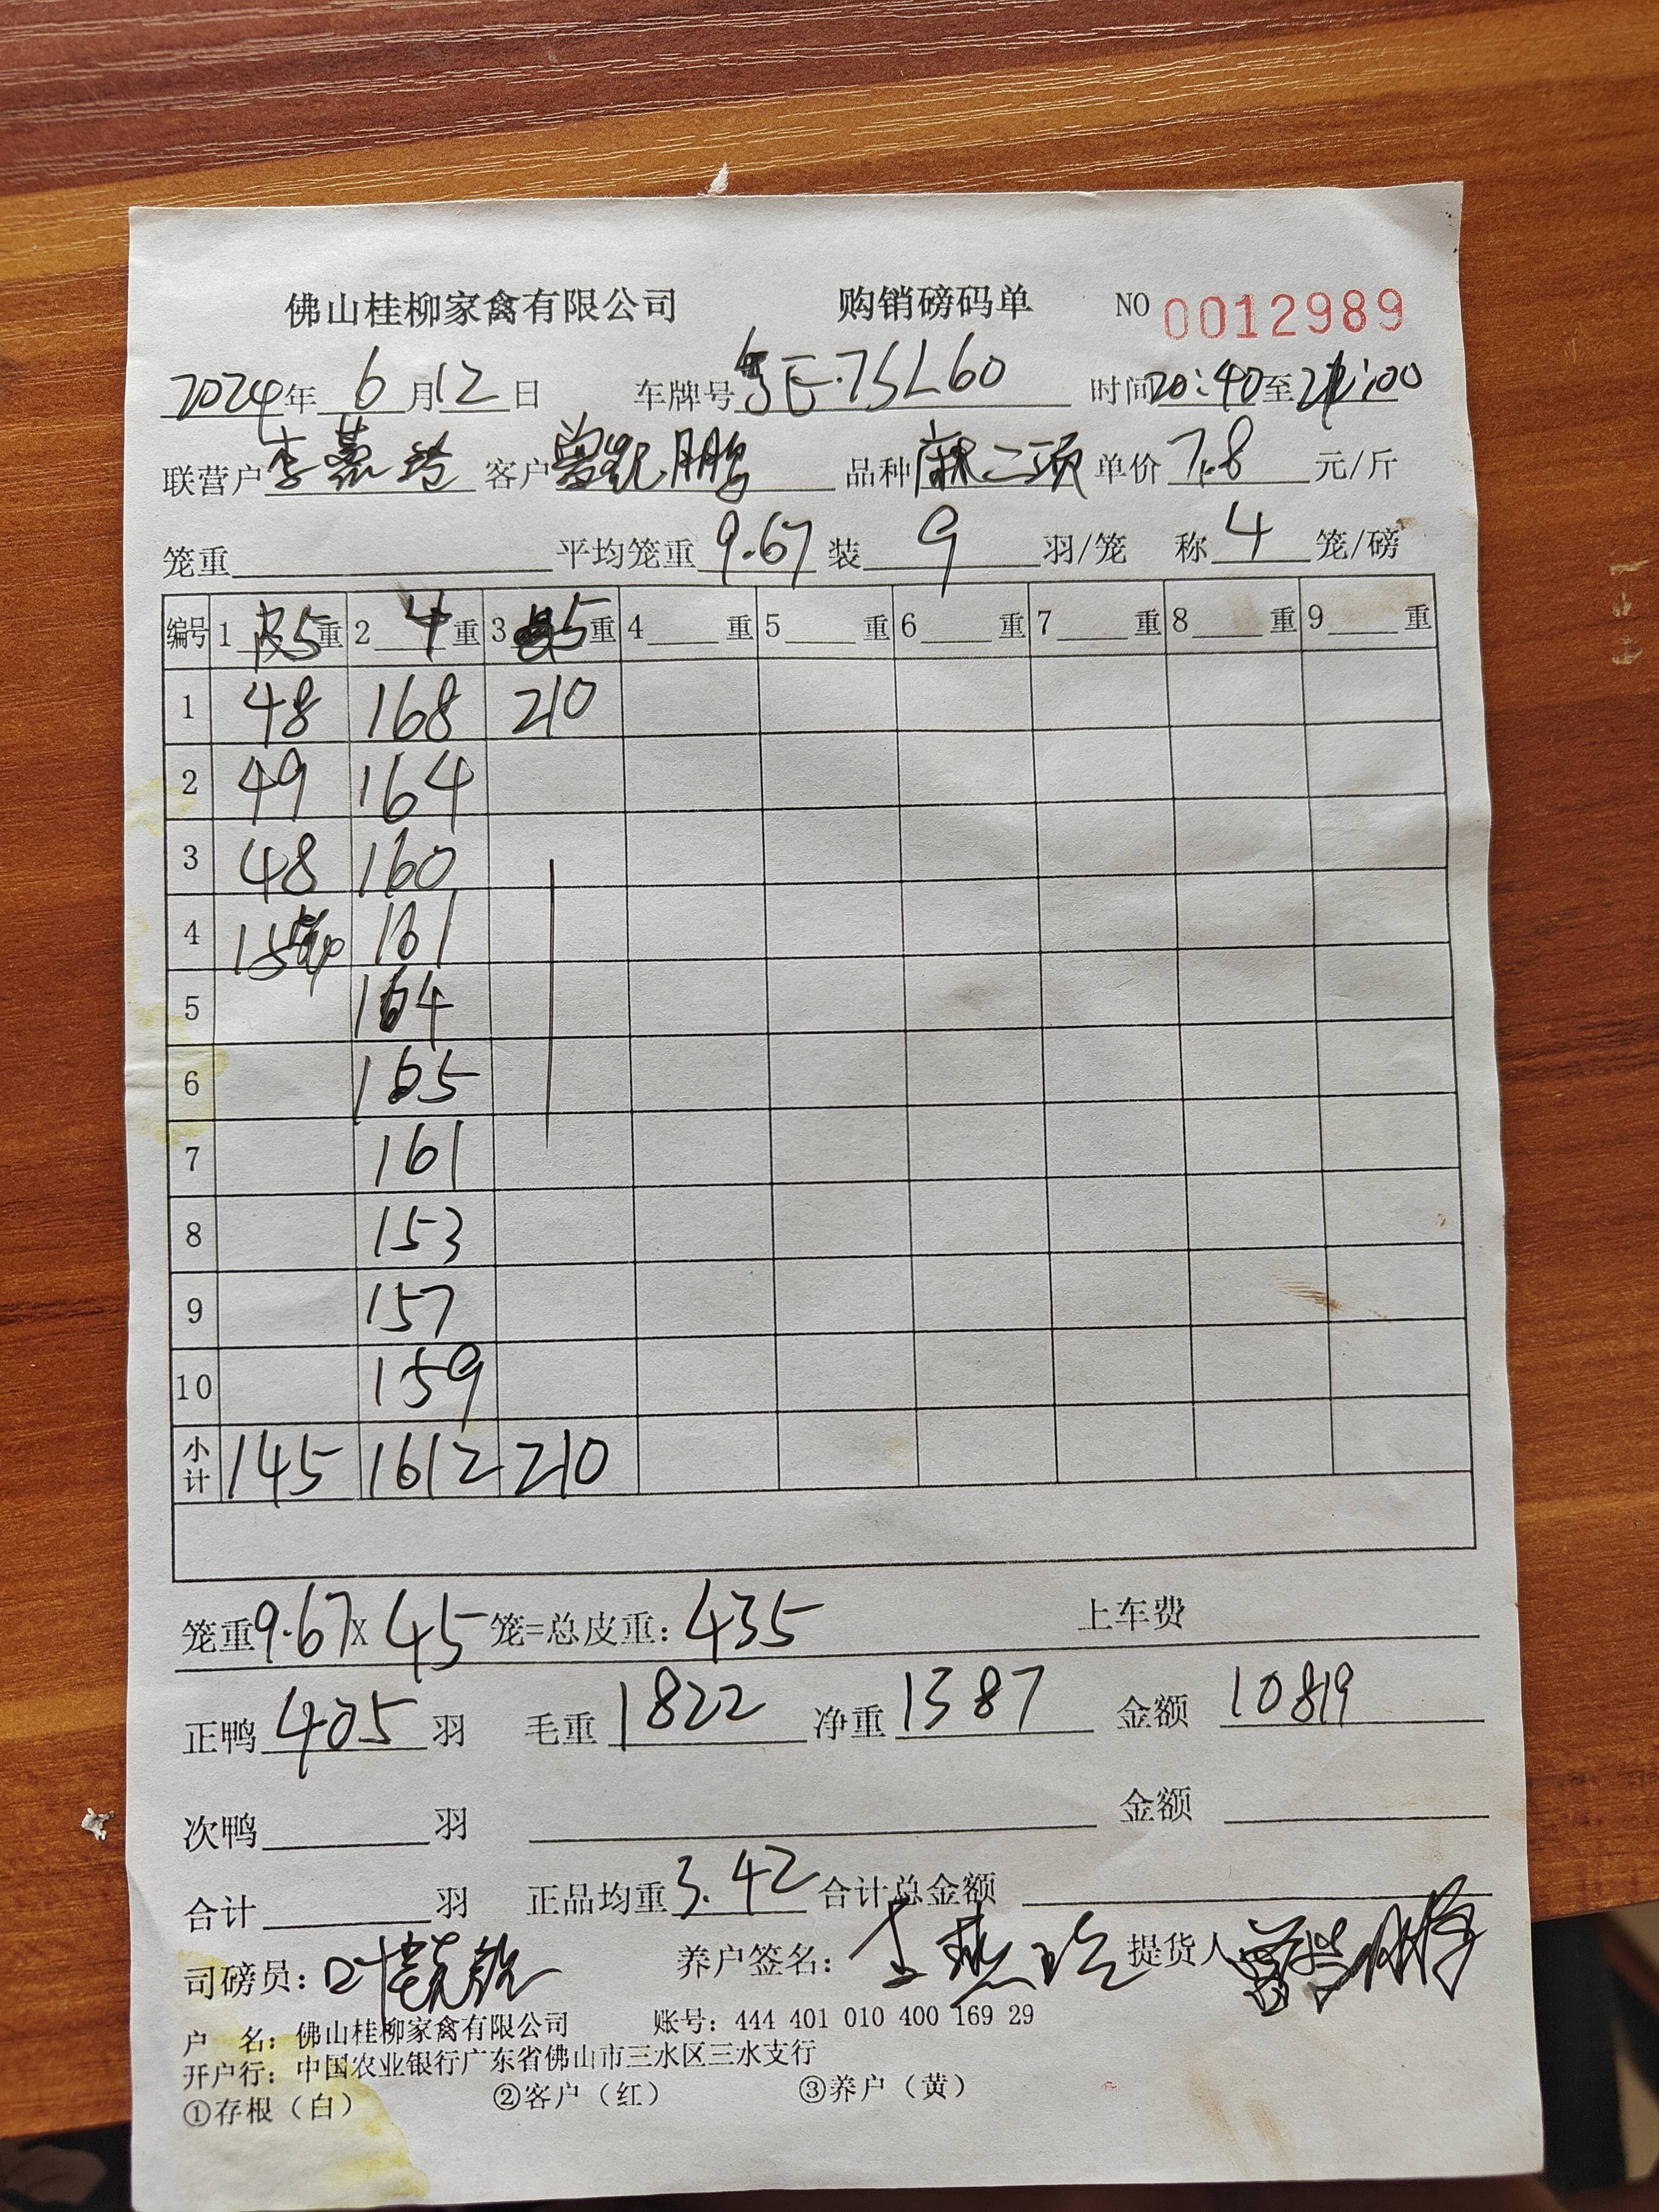 佛山桂柳家禽有限公司 购销磅码单 NO 0012989
2024年 6月12日 车牌号 粤E·7SL60 时间20:40至21:00
联营户 李燕玲 客户 曾凯鹏 品种 麻二项 单价 7.8 元/斤
笼重 平均笼重 9.67 装 9 羽/笼 称 4 笼/磅
编号 1 皮5 重 2 4 重 3 5 重 4 重 5 重 6 重 7 重 8 重 9 重
1 48 168 210
2 49 164
3 48 160
4 161
5 164
6 165
7 161
8 153
9 157
10 159
小计 145 1612 210
笼重9.67X 45 笼=总皮重: 435 上车费
正鸭 405 羽 毛重 1822 净重 1387 金额 10819
次鸭 羽 金额
合计 羽 正品均重 3.42 合计总金额
司磅员: 叶 养户签名: 李燕玲 提货人 曾凯鹏
户 名: 佛山桂柳家禽有限公司 账号: 444 401 010 400 169 29
开户行: 中国农业银行广东省佛山市三水区三水支行
①存根（白） ②客户（红） ③养户（黄）